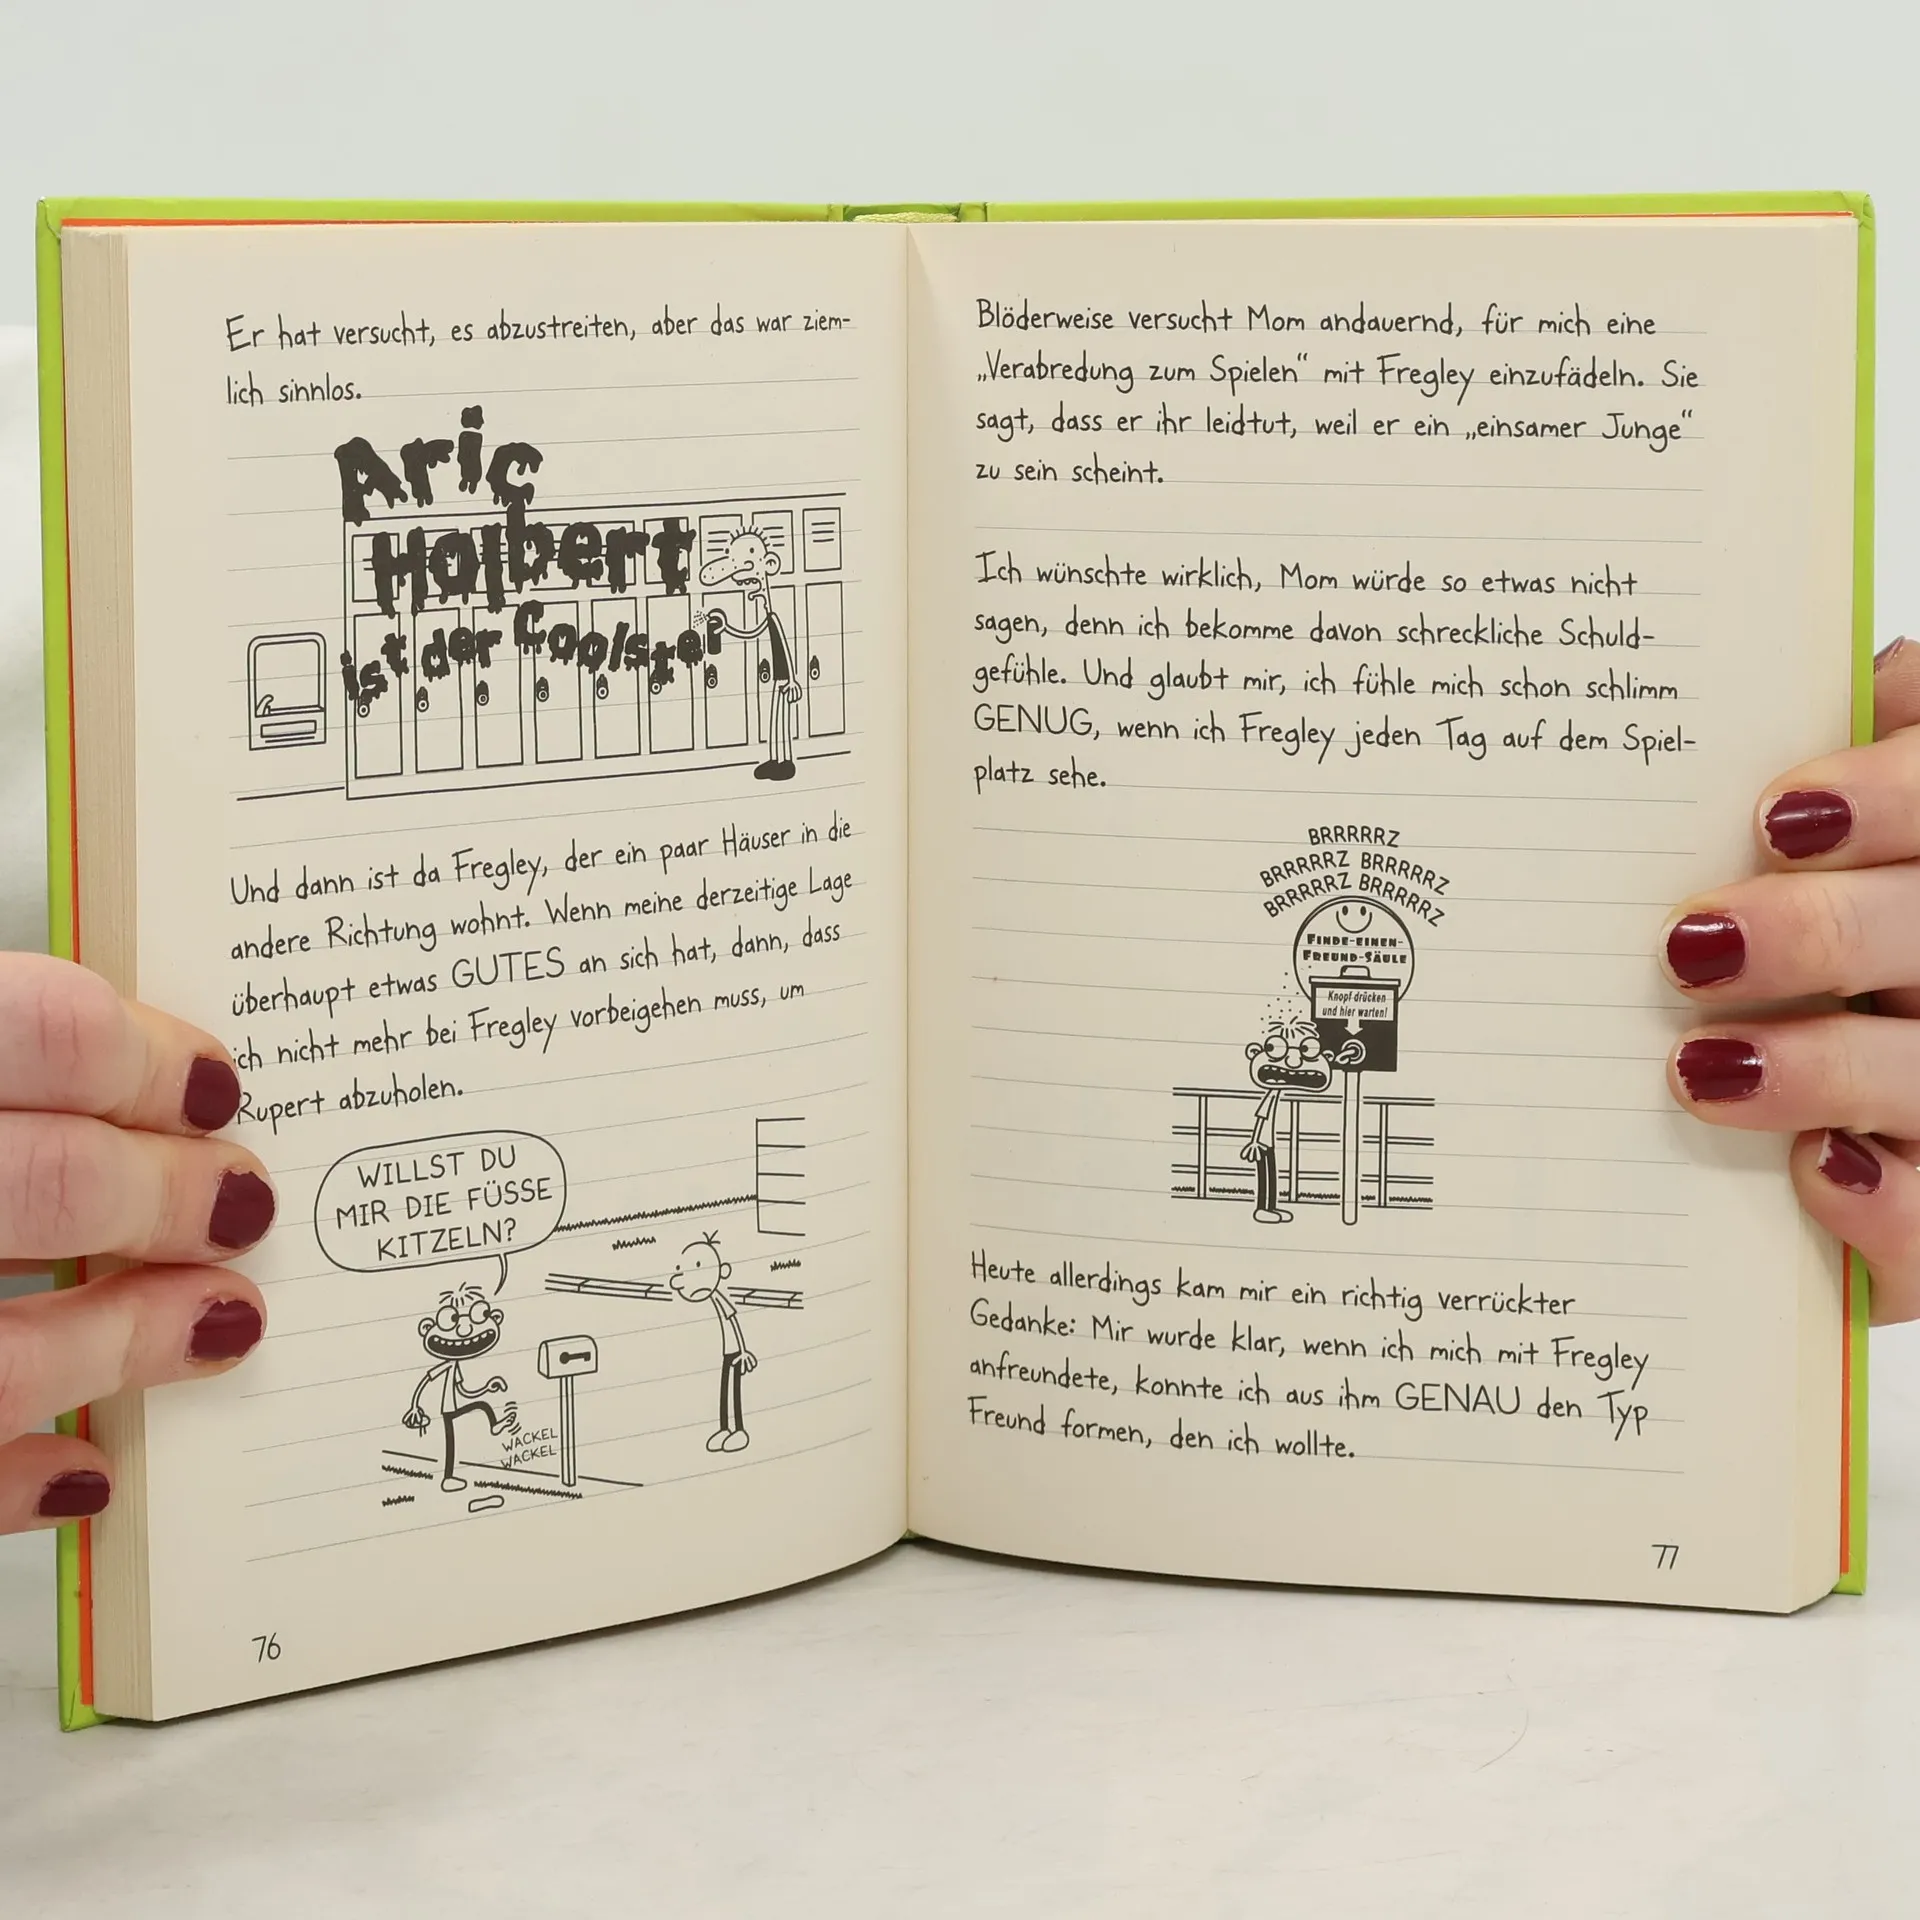 Er hat versucht, es abzustreiten, aber das war ziem-
lich sinnlos.
Aric
Holbert
ist der Coolste!
Und dann ist da Fregley, der ein paar Häuser in die
andere Richtung wohnt. Wenn meine derzeitige Lage
überhaupt etwas GUTES an sich hat, dann, dass
ich nicht mehr bei Fregley vorbeigehen muss, um
Rupert abzuholen.
WILLST DU
MIR DIE FÜSSE
KITZELN?
WACKEL
WACKEL
76
Blöderweise versucht Mom andauernd, für mich eine
„Verabredung zum Spielen“ mit Fregley einzufädeln. Sie
sagt, dass er ihr leidtut, weil er ein „einsamer Junge“
zu sein scheint.
Ich wünschte wirklich, Mom würde so etwas nicht
sagen, denn ich bekomme davon schreckliche Schuld-
gefühle. Und glaubt mir, ich fühle mich schon schlimm
GENUG, wenn ich Fregley jeden Tag auf dem Spiel-
platz sehe.
BRRRRRZ
BRRRRRZ BRRRRRZ
BRRRRRZ BRRRRRZ
FINDE-EINEN-
FREUND-SÄULE
Knopf drücken
und hier warten!
Heute allerdings kam mir ein richtig verrückter
Gedanke: Mir wurde klar, wenn ich mich mit Fregley
anfreundete, konnte ich aus ihm GENAU den Typ
Freund formen, den ich wollte.
77